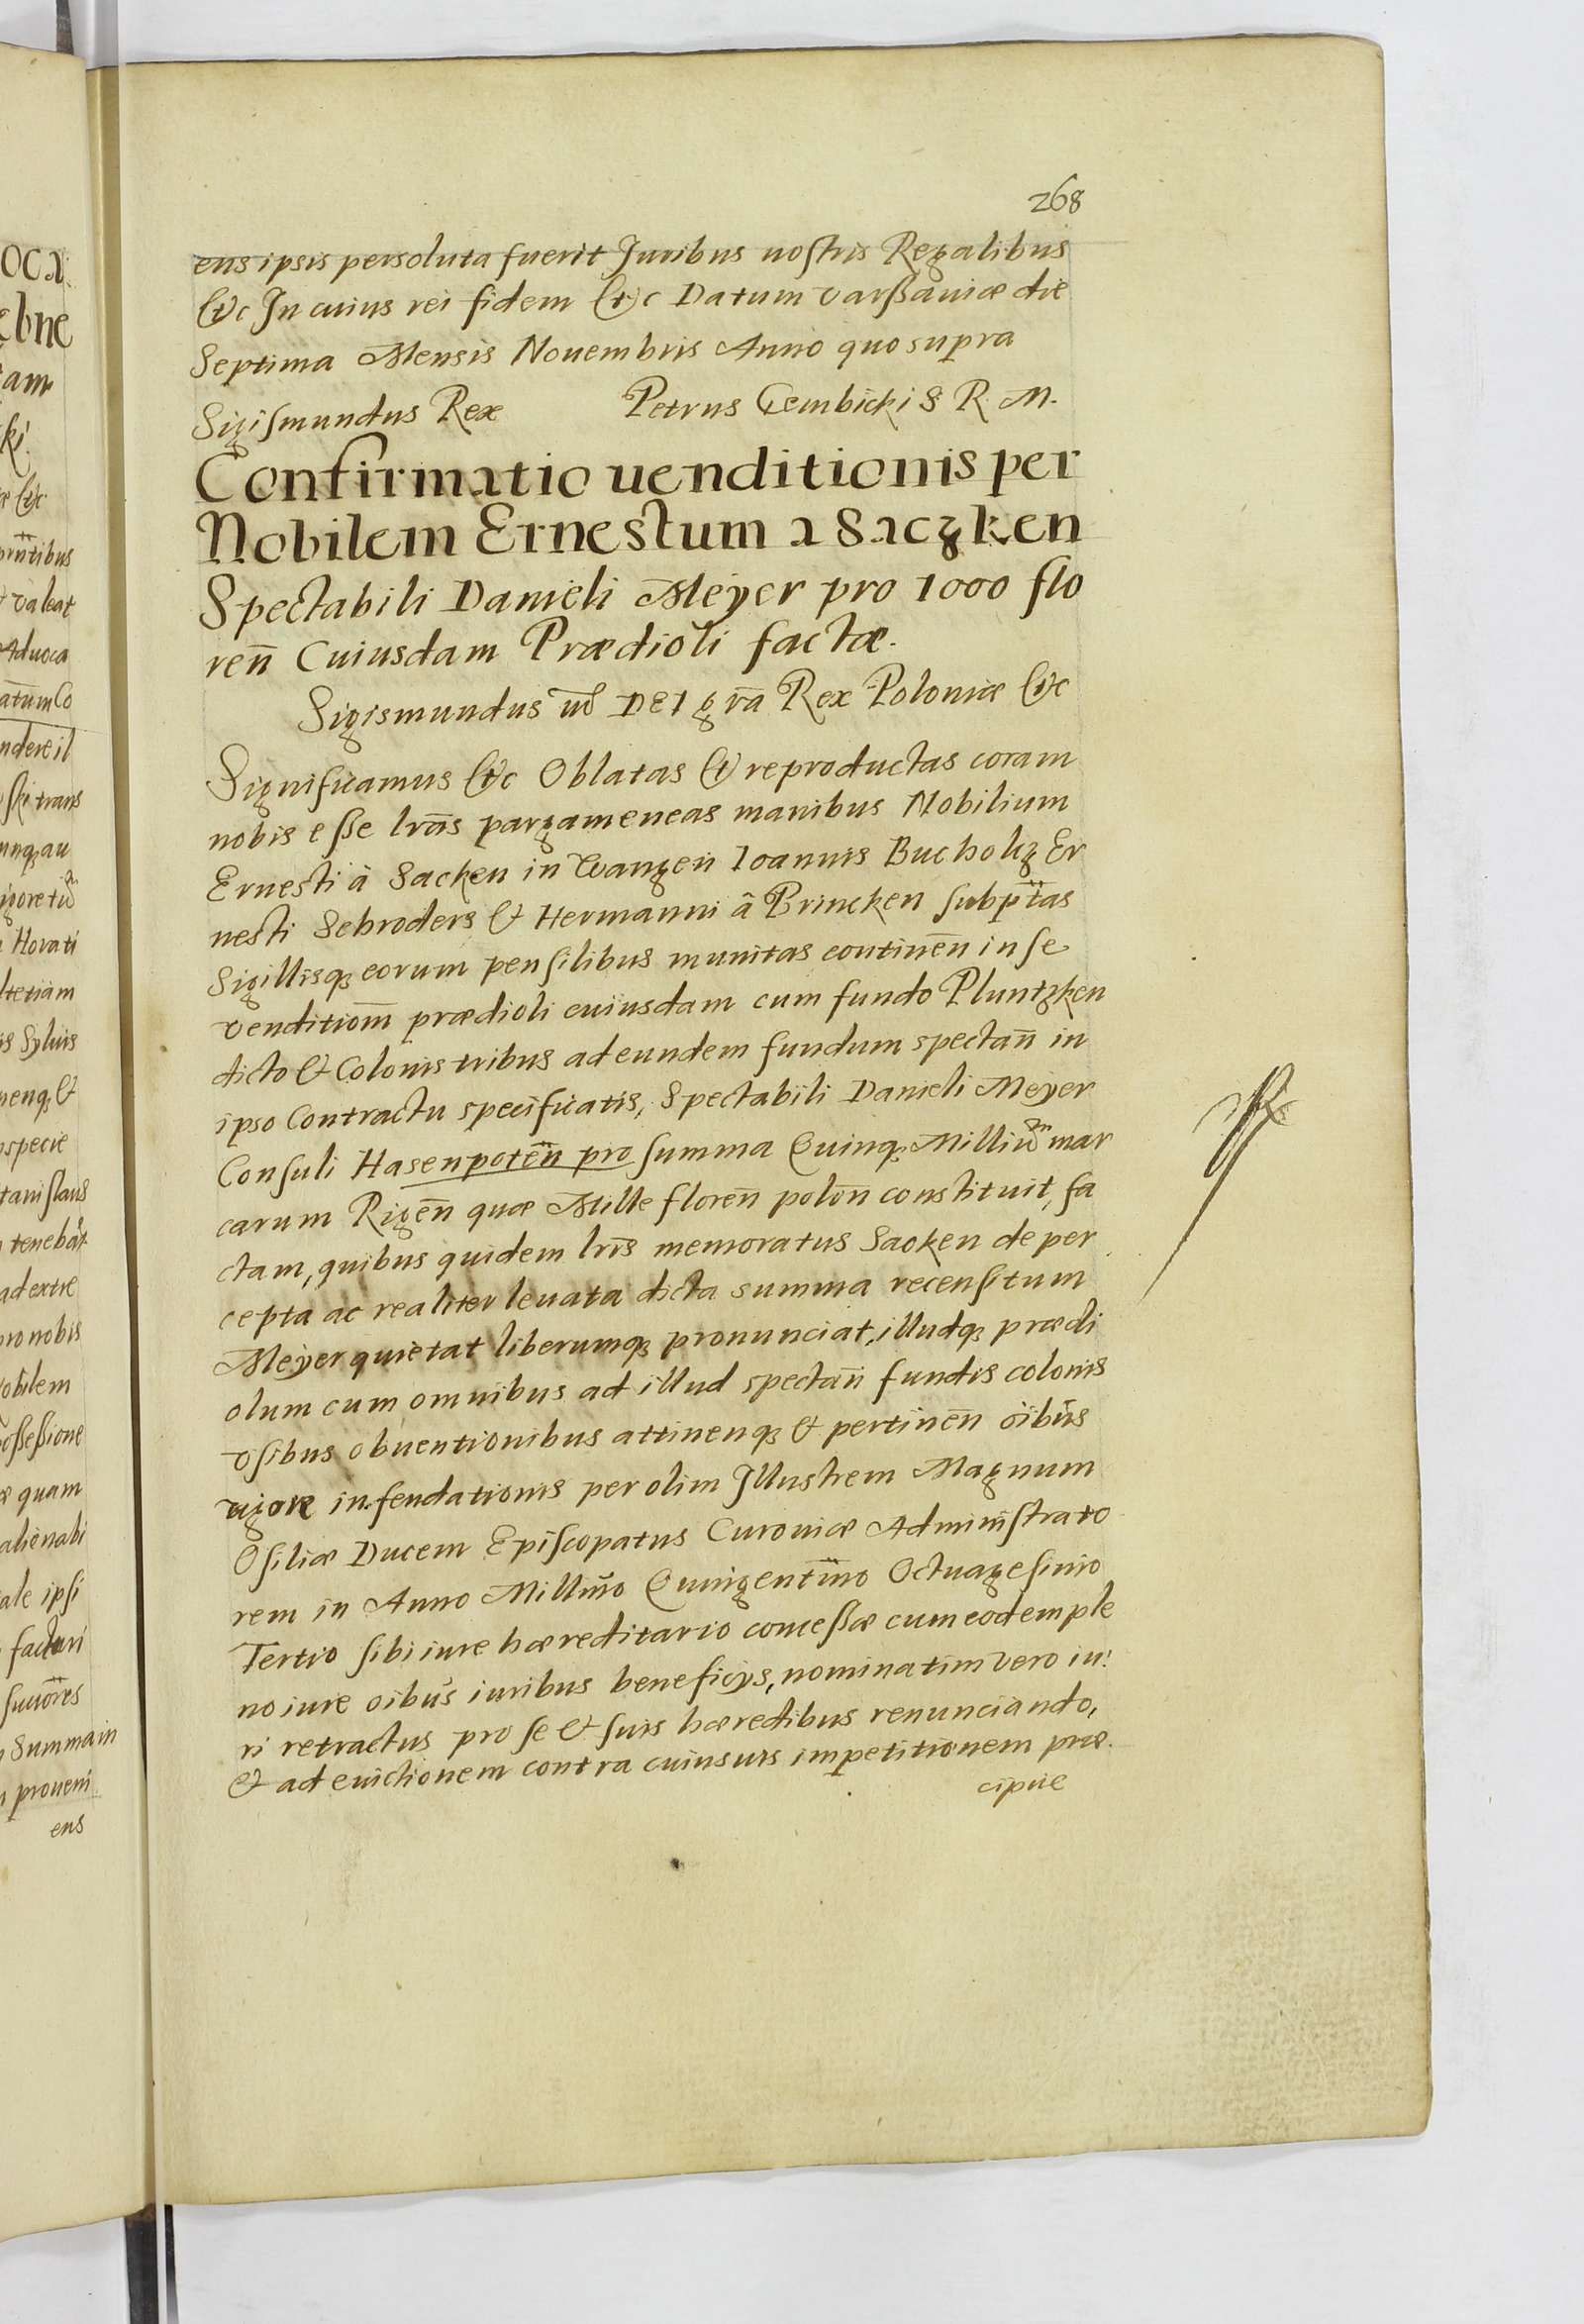 268
ens ipsis persoluta fuerit Juribus nostris Regalibus
&c In cuius rei fidem &c Datum Varßauiæ die
Septima Mensis Nouembris Anno quo supra
Sigismundus Rex Petrus Gembicki S R. M.
Confirmatio uenditionis per
Nobilem Ernestum a Saczken
Spectabili Danieli Meyer pro 1000 flo
reñ Cuiusdam Prædioli factæ.
Sigismundus DEI gra Rex Poloniæ &c
Significamus &c Oblatas & reproductas coram
nobis eße lras pargameneas manibus Nobilium
Ernesti à Sacken in Wangen Ioannis Bucholtz Er
nesti Schroders & Hermanni â Brincken subptas
Sigillisq; eorum pensilibus munitas continen in se
venditiom prædioli cuiusdam cum fundo Pluntzken
dicto & Colonis tribus ad eundem fundum spectañ in
ipso Contractu specificatis, Spectabili Danieli Meyer
Consuli Hasenpoten pro summa Quinq; Milliu mar
carum Rigen quæ Mille floren polon constituit, fa
ctam, quibus quidem lris memoratus Sacken de per
cepta ac realiter leuata dicta summa recensitum
Meyer quietat liberumq; pronunciat, illudq; prædi
olum cum omnibus ad illud spectan fundis colonis
vsibus obuentionibus attinenq; & pertinen oibus
uigore infeudationis per olim Illustrem Magnum
Osiliæ Ducem Episcopatus Curoniæ Administrato
rem in Anno Millmo Quingentmo Octuagesimo
Tertio sibi iure hæreditario conceßæ cum eodem ple
no iure oibus iuribus beneficys, nominatim vero iu:
ri retractus pro se & suis hæredibus renunciando,
& ad euictionem contra cuiusuis impetitionem præ.
cipue